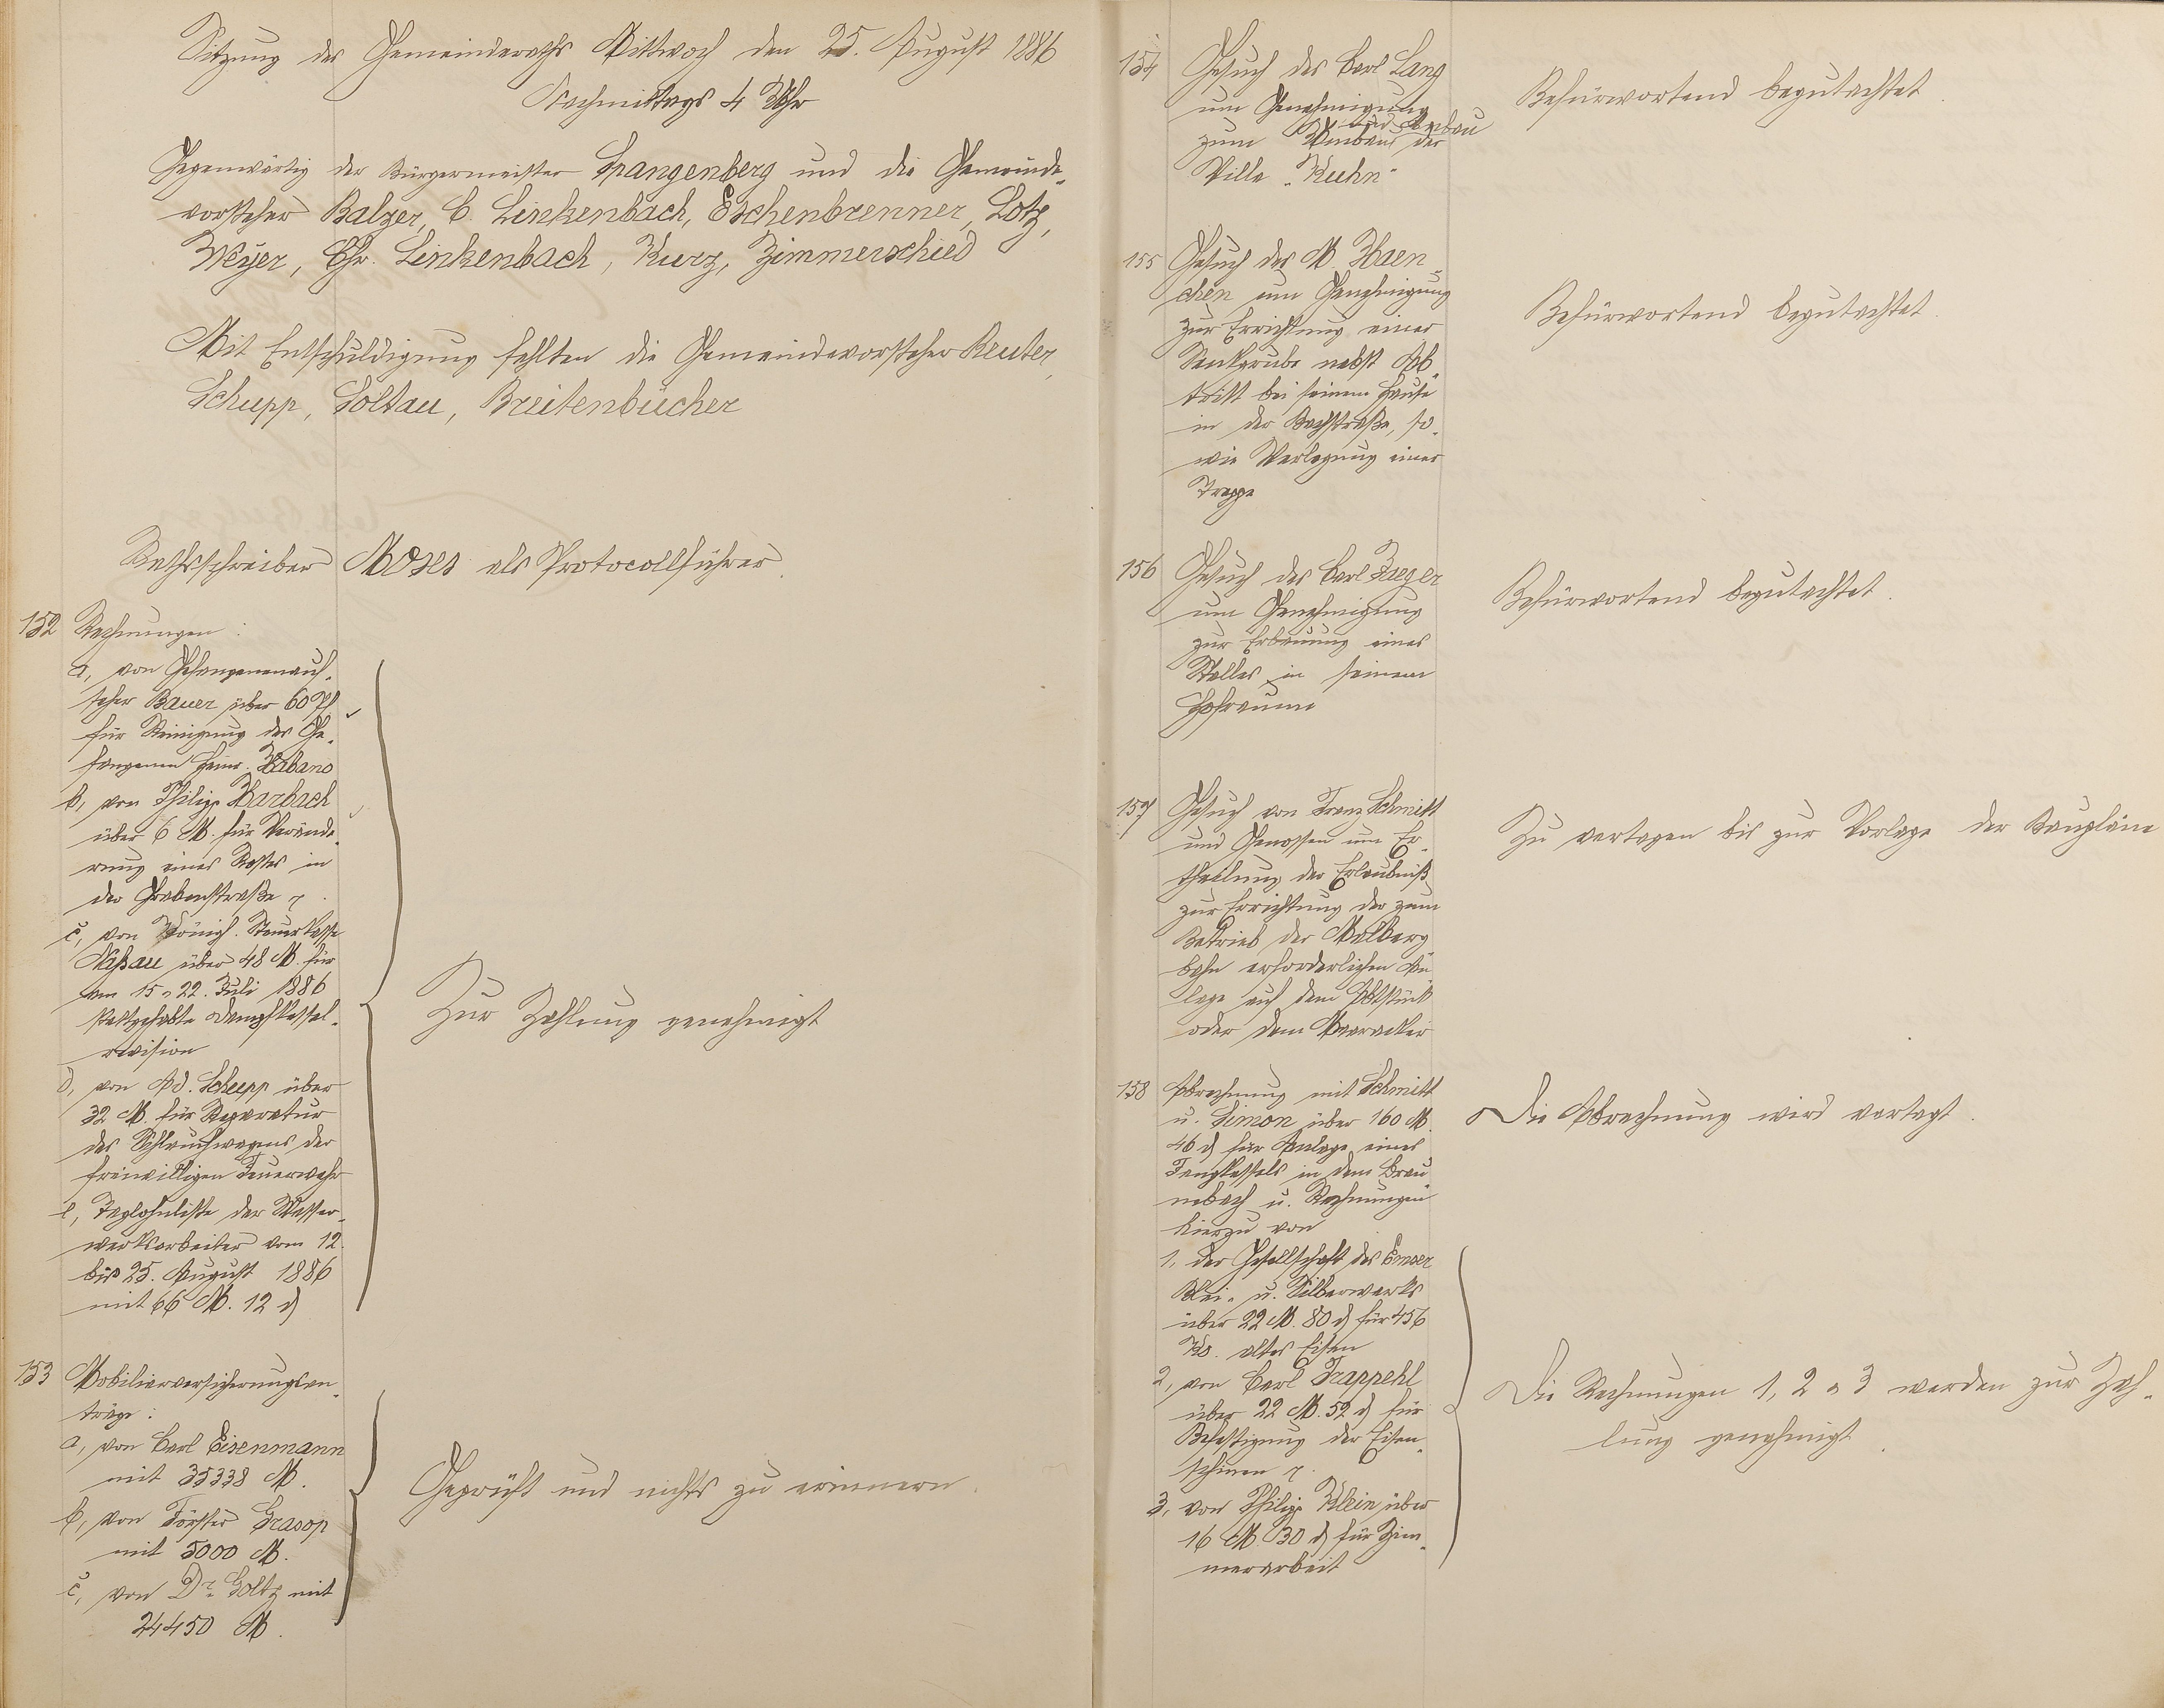 Sitzung des Gemeinderaths Mittwoch den 25. August 1886
Nachmittags 4 Uhr
Gegenwärtig der Bürgermeister Spangenberg und die Gemeinde-
vorsteher Balzer, C. Linkenbach, Eschenbrenner, Lotz,
Meyer, Chr. Linkenbach, Kurz, Zimmerschied
Mit Entschuldigung fehlten die Gemeindevorsteher Reuter,
Schupp, Soltau, Breitenbücher
Rathsschreiber Moses als Protocollführer.
152 Rechnungen:
a, von Gefangenenauf-
seher Bauer über 60 Pf
für Reinigung des Ge-
fangenen Heinr. Urbano
b, von Philipp Harbach
über 6 M. für Verände-
rung eines Rostes in
der Grabenstraße
c, von Königl. Steuerkasse
Naßau über 48 M. für
am 15 u 22. Juli 1886
stattgehabte Dampfkessel-
revision
d, von Ad. Schupp über
32 M. für Reparatur
des Schlauchwagens der
freiwilligen Feuerwehr
e, Taglohnliste der Wasser-
werksarbeiter vom 12.
bis 25. August 1886
mit 66 M. 12 d
Zur Zahlung genehmigt
153 Mobiliarversicherungsan-
träge:
a, von Carl Eisenmann
mit 35338 M.
b, von Förster
mit 5000 M.
c, von Dr. Goltz mit
24450 M.
Geprüft und nichts zu erinnern.
154 Gesuch des Carl Lang
um Genehmigung
und Anbau
zum Umbau der
Villa „Kuhn"
Befürwortend begutachtet.
155 Gesuch des M. Haen-
chen um Genehmigung
zur Errichtung einer
Senkgrube nebst Ab-
tritt bei seinem Hause
in der Bachstraße, so-
wie Verlegung einer
Treppe
Befürwortend begutachtet.
156 Gesuch des Carl Jaeger
um Genehmigung
zur Erbauung eines
Stalles in seinem
Hofraume
Befürwortend begutachtet.
157 Gesuch von Franz Schmitt
und Genossen um Er-
theilung der Erlaubniß
zur Errichtung der zum
Betrieb der Malberg-
bahn erforderlichen An-
lage auf dem
oder dem
Zu vertagen bis zur Vorlage der Baupläne
158 Abrechnung mit Schmitt
u. Simon über 160 M.
46 d für Anlage eines
Fangkessels in dem Brau-
nebach u. Rechnungen
hierzu von
Die Abrechnung wird vertagt.
1, der Gesellschaft des Emser
Blei- u. Silberwerks
über 22 M. 80 d für 456
Ko. altes Eisen
2, von Carl Trappehl
über 22 M. 52 d für
Befestigung der Eisen-
schienen
3, von Philipp Klein über
16 M. 30 d für Zim-
merarbeit
Die Rechnungen 1, 2 u 3 werden zur Zah-
lung genehmigt.